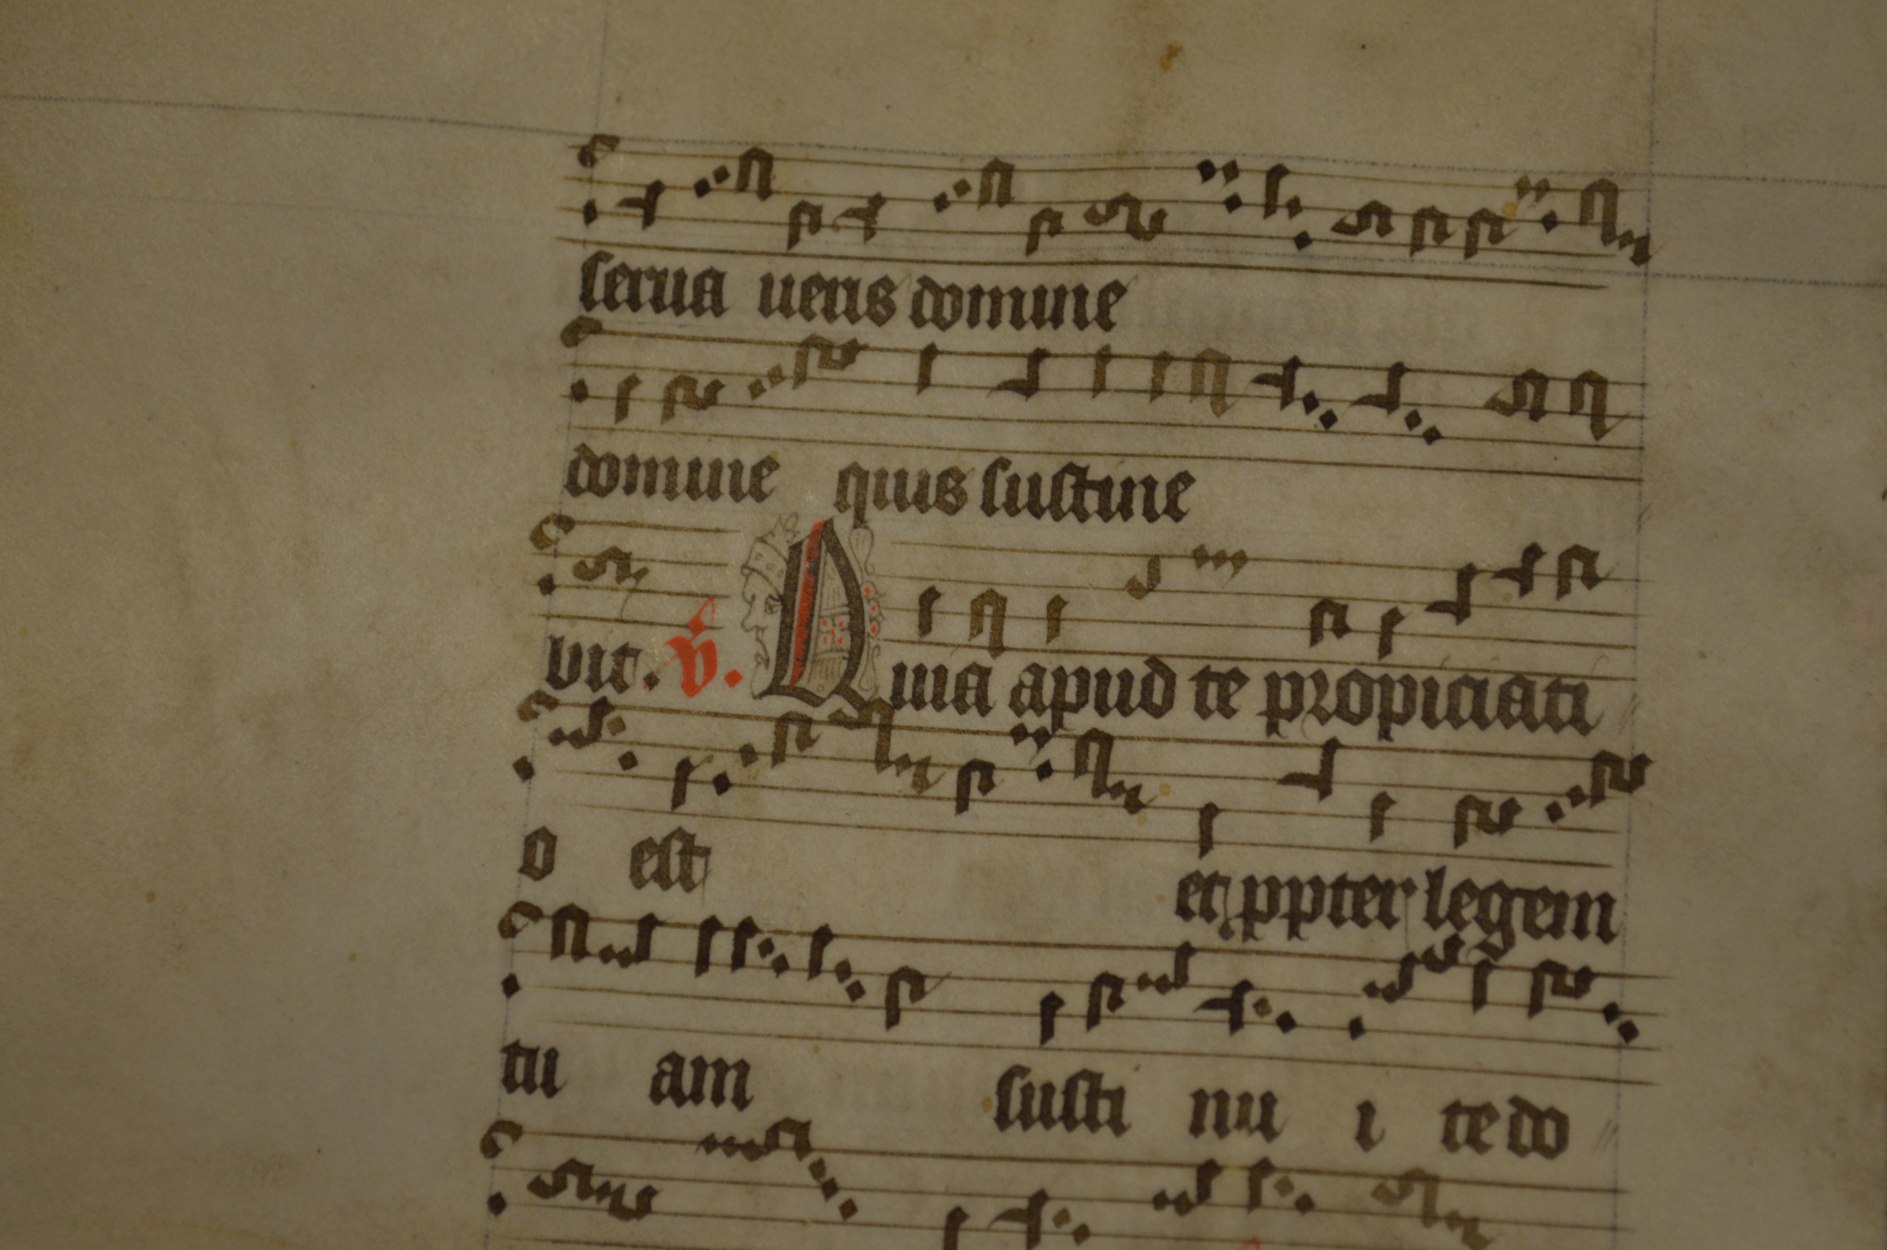 serua ueris domine
domine quis sustine
bit. v. Quia apud te propiciati
o est et ppter legem
tu am susti nu i te do